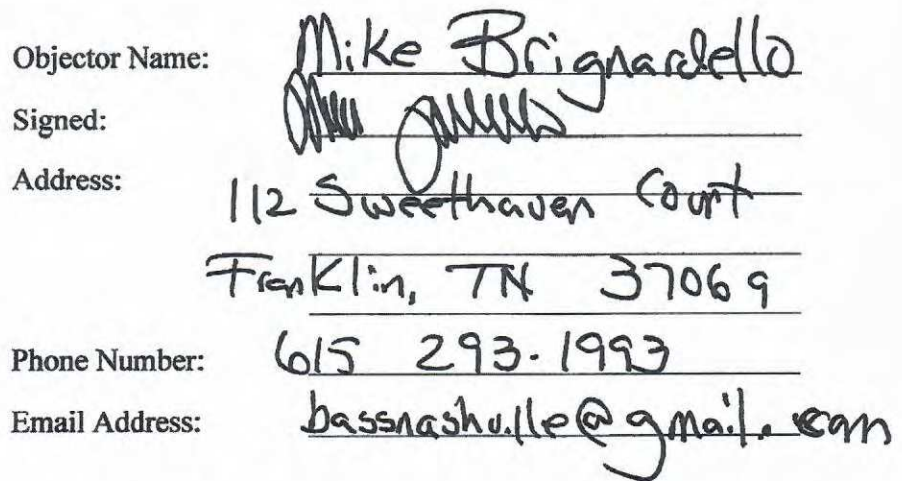 Objector Name: Mike Brignardello
Signed:
Address:
112 Sweethaven Court
Franklin, TN 37069
Phone Number: 615 293-1993
Email Address: bassnashville@gmail.com